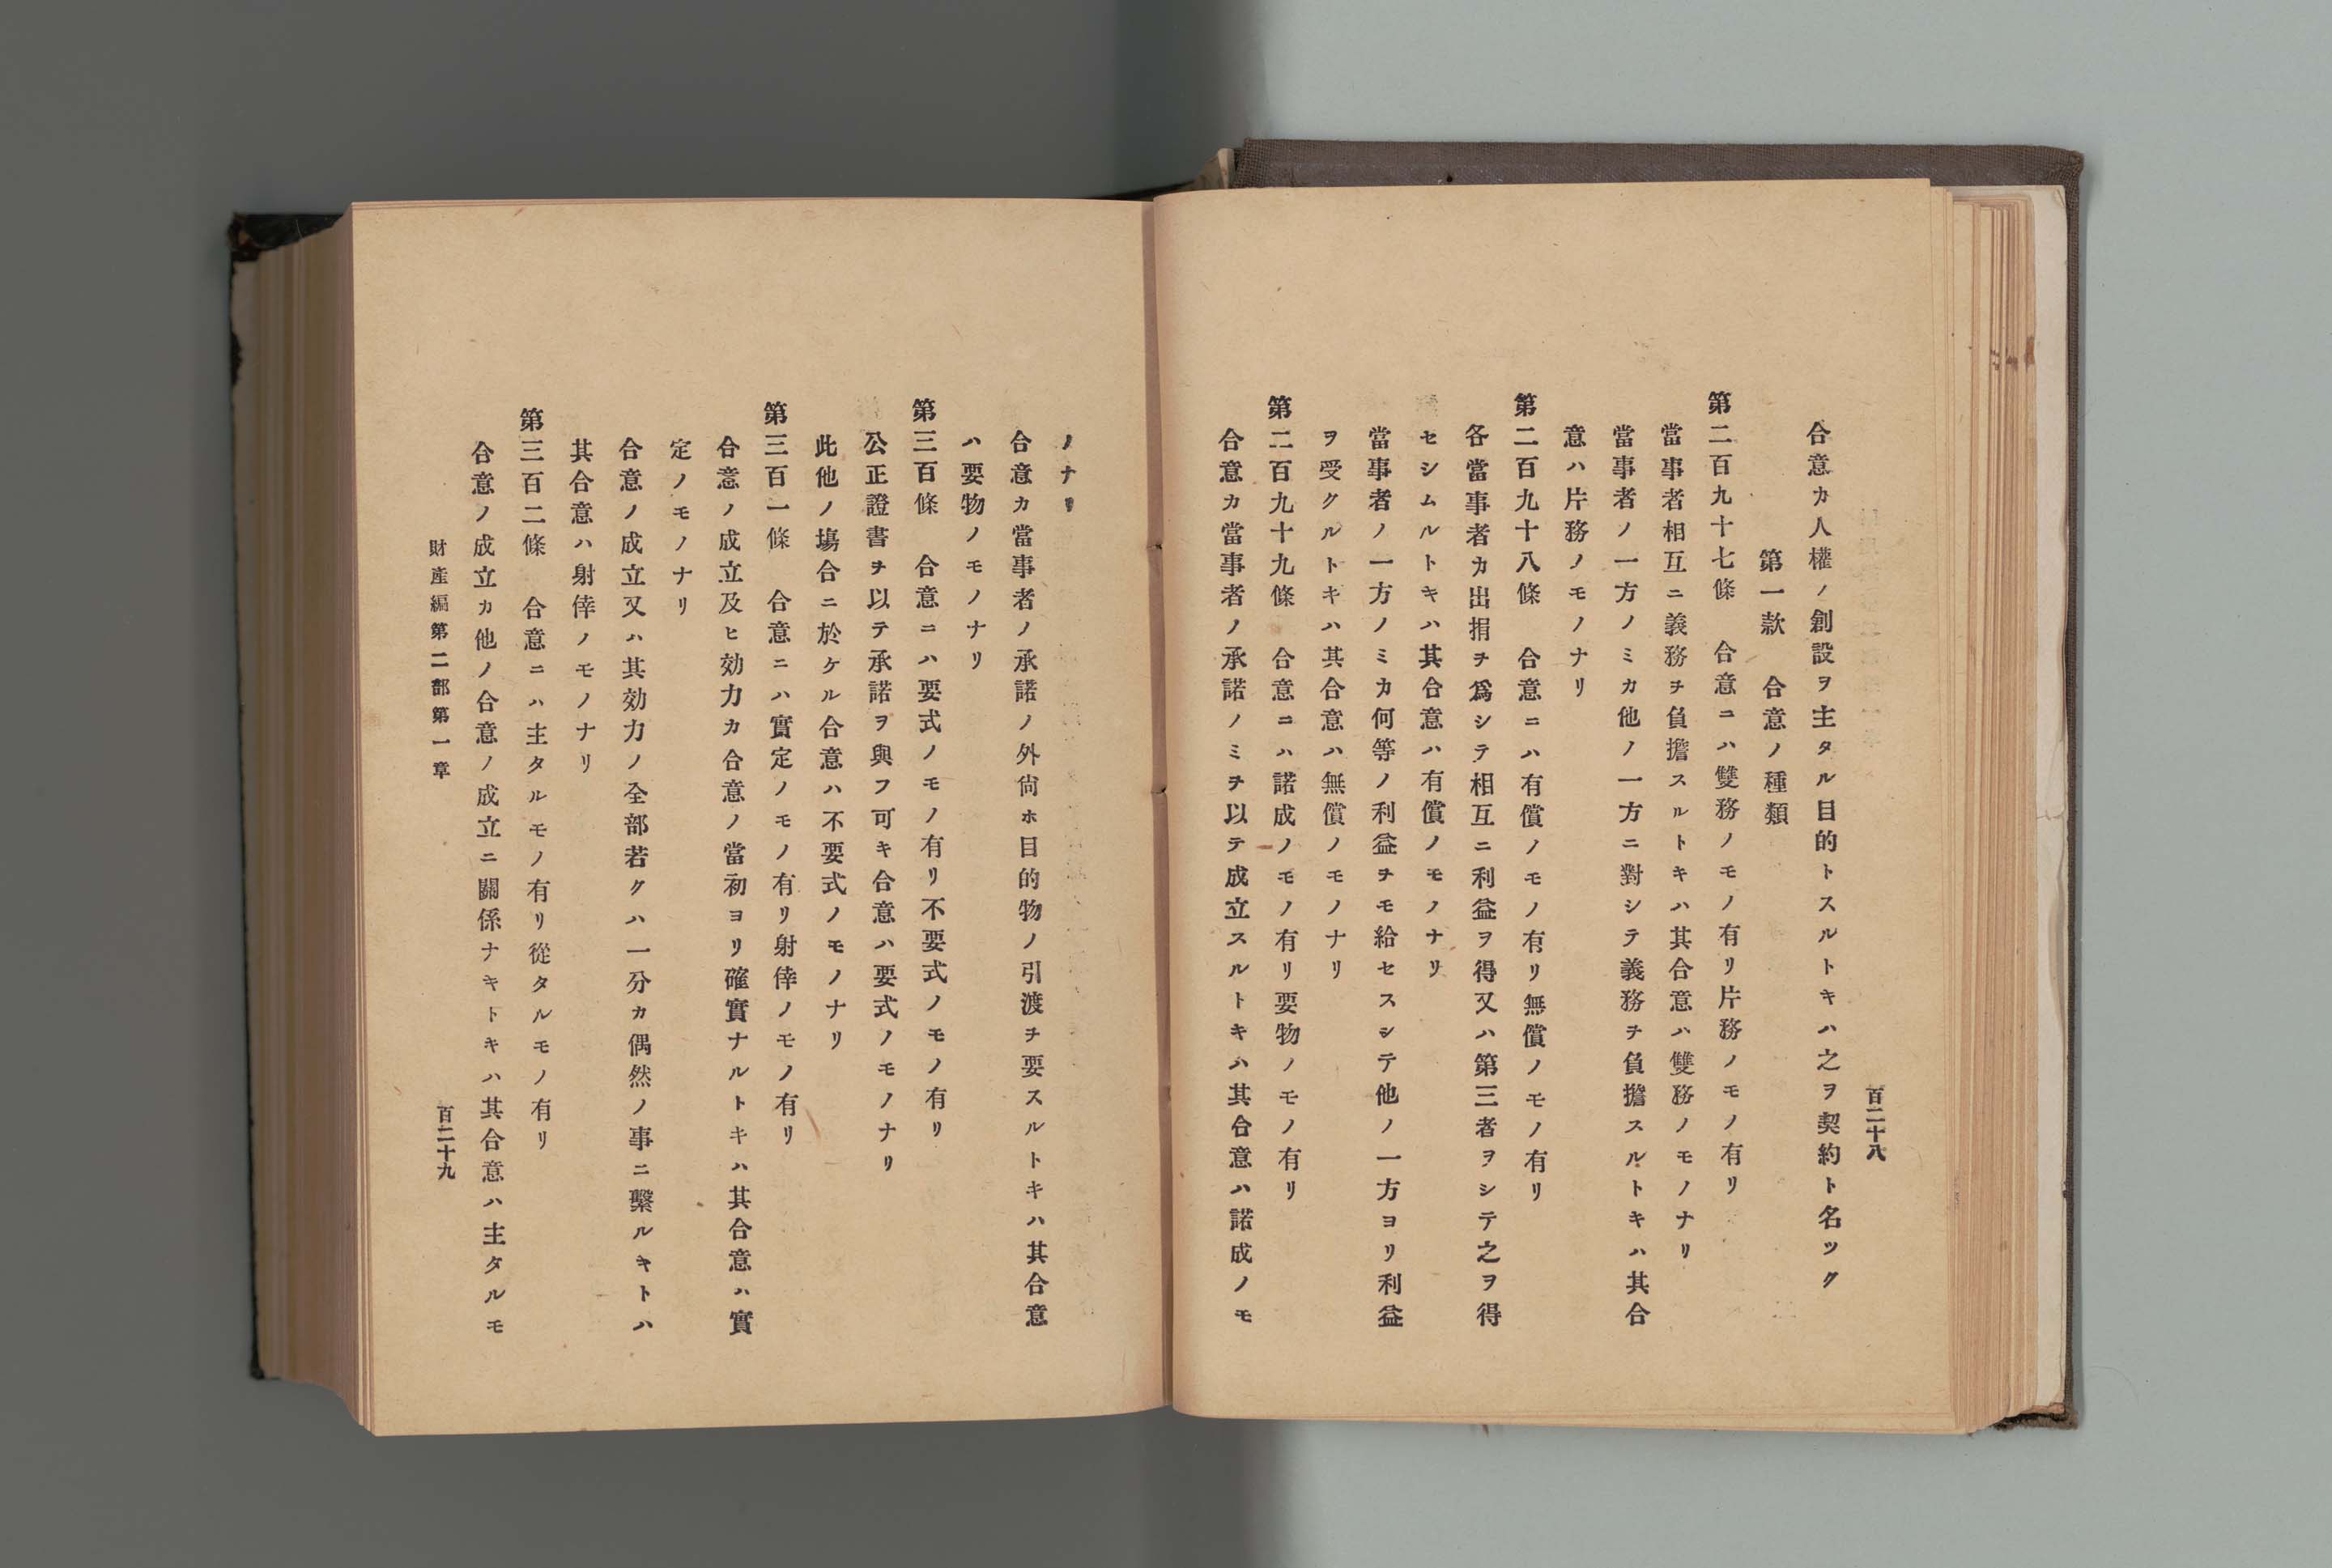 百二十八
合意カ人權ノ創設ヲ主タル目的トスルトキハ之ヲ契約ト名ツク
第一款　合意ノ種類
第二百九十七條　合意ニハ雙務ノモノ有リ片務ノモノ有リ
當事者相互ニ義務ヲ負擔スルトキハ其合意ハ雙務ノモノナリ
當事者ノ一方ノミカ他ノ一方ニ對シテ義務ヲ負擔スルトキハ其合
意ハ片務ノモノナリ
第二百九十八條　合意ニハ有償ノモノ有リ無償ノモノ有リ
各當事者カ出捐ヲ爲シテ相互ニ利益ヲ得又ハ第三者ヲシテ之ヲ得
セシムルトキハ其合意ハ有償ノモノナリ
當事者ノ一方ノミカ何等ノ利益ヲモ給セスシテ他ノ一方ヨリ利益
ヲ受クルトキハ其合意ハ無償ノモノナリ
第二百九十九條　合意ニハ諾成ノモノ有リ要物ノモノ有リ
合意カ當事者ノ承諾ノミヲ以テ成立スルトキハ其合意ハ諾成ノモ
ノナリ
合意カ當事者ノ承諾ノ外尙ホ目的物ノ引渡ヲ要スルトキハ其合意
ハ要物ノモノナリ
第三百條　合意ニハ要式ノモノ有リ不要式ノモノ有リ
公正證書ヲ以テ承諾ヲ與フ可キ合意ハ要式ノモノナリ
此他ノ塲合ニ於ケル合意ハ不要式ノモノナリ
第三百一條　合意ニハ實定ノモノ有リ射倖ノモノ有リ
合意ノ成立及ヒ効力カ合意ノ當初ヨリ確實ナルトキハ其合意ハ實
定ノモノナリ
合意ノ成立又ハ其効力ノ全部若クハ一分カ偶然ノ事ニ繫ルキトハ
其合意ハ射倖ノモノナリ
第三百二條　合意ニハ主タルモノ有リ從タルモノ有リ
合意ノ成立カ他ノ合意ノ成立ニ關係ナキトキハ其合意ハ主タルモ
財產編第二部第一章
百二十九